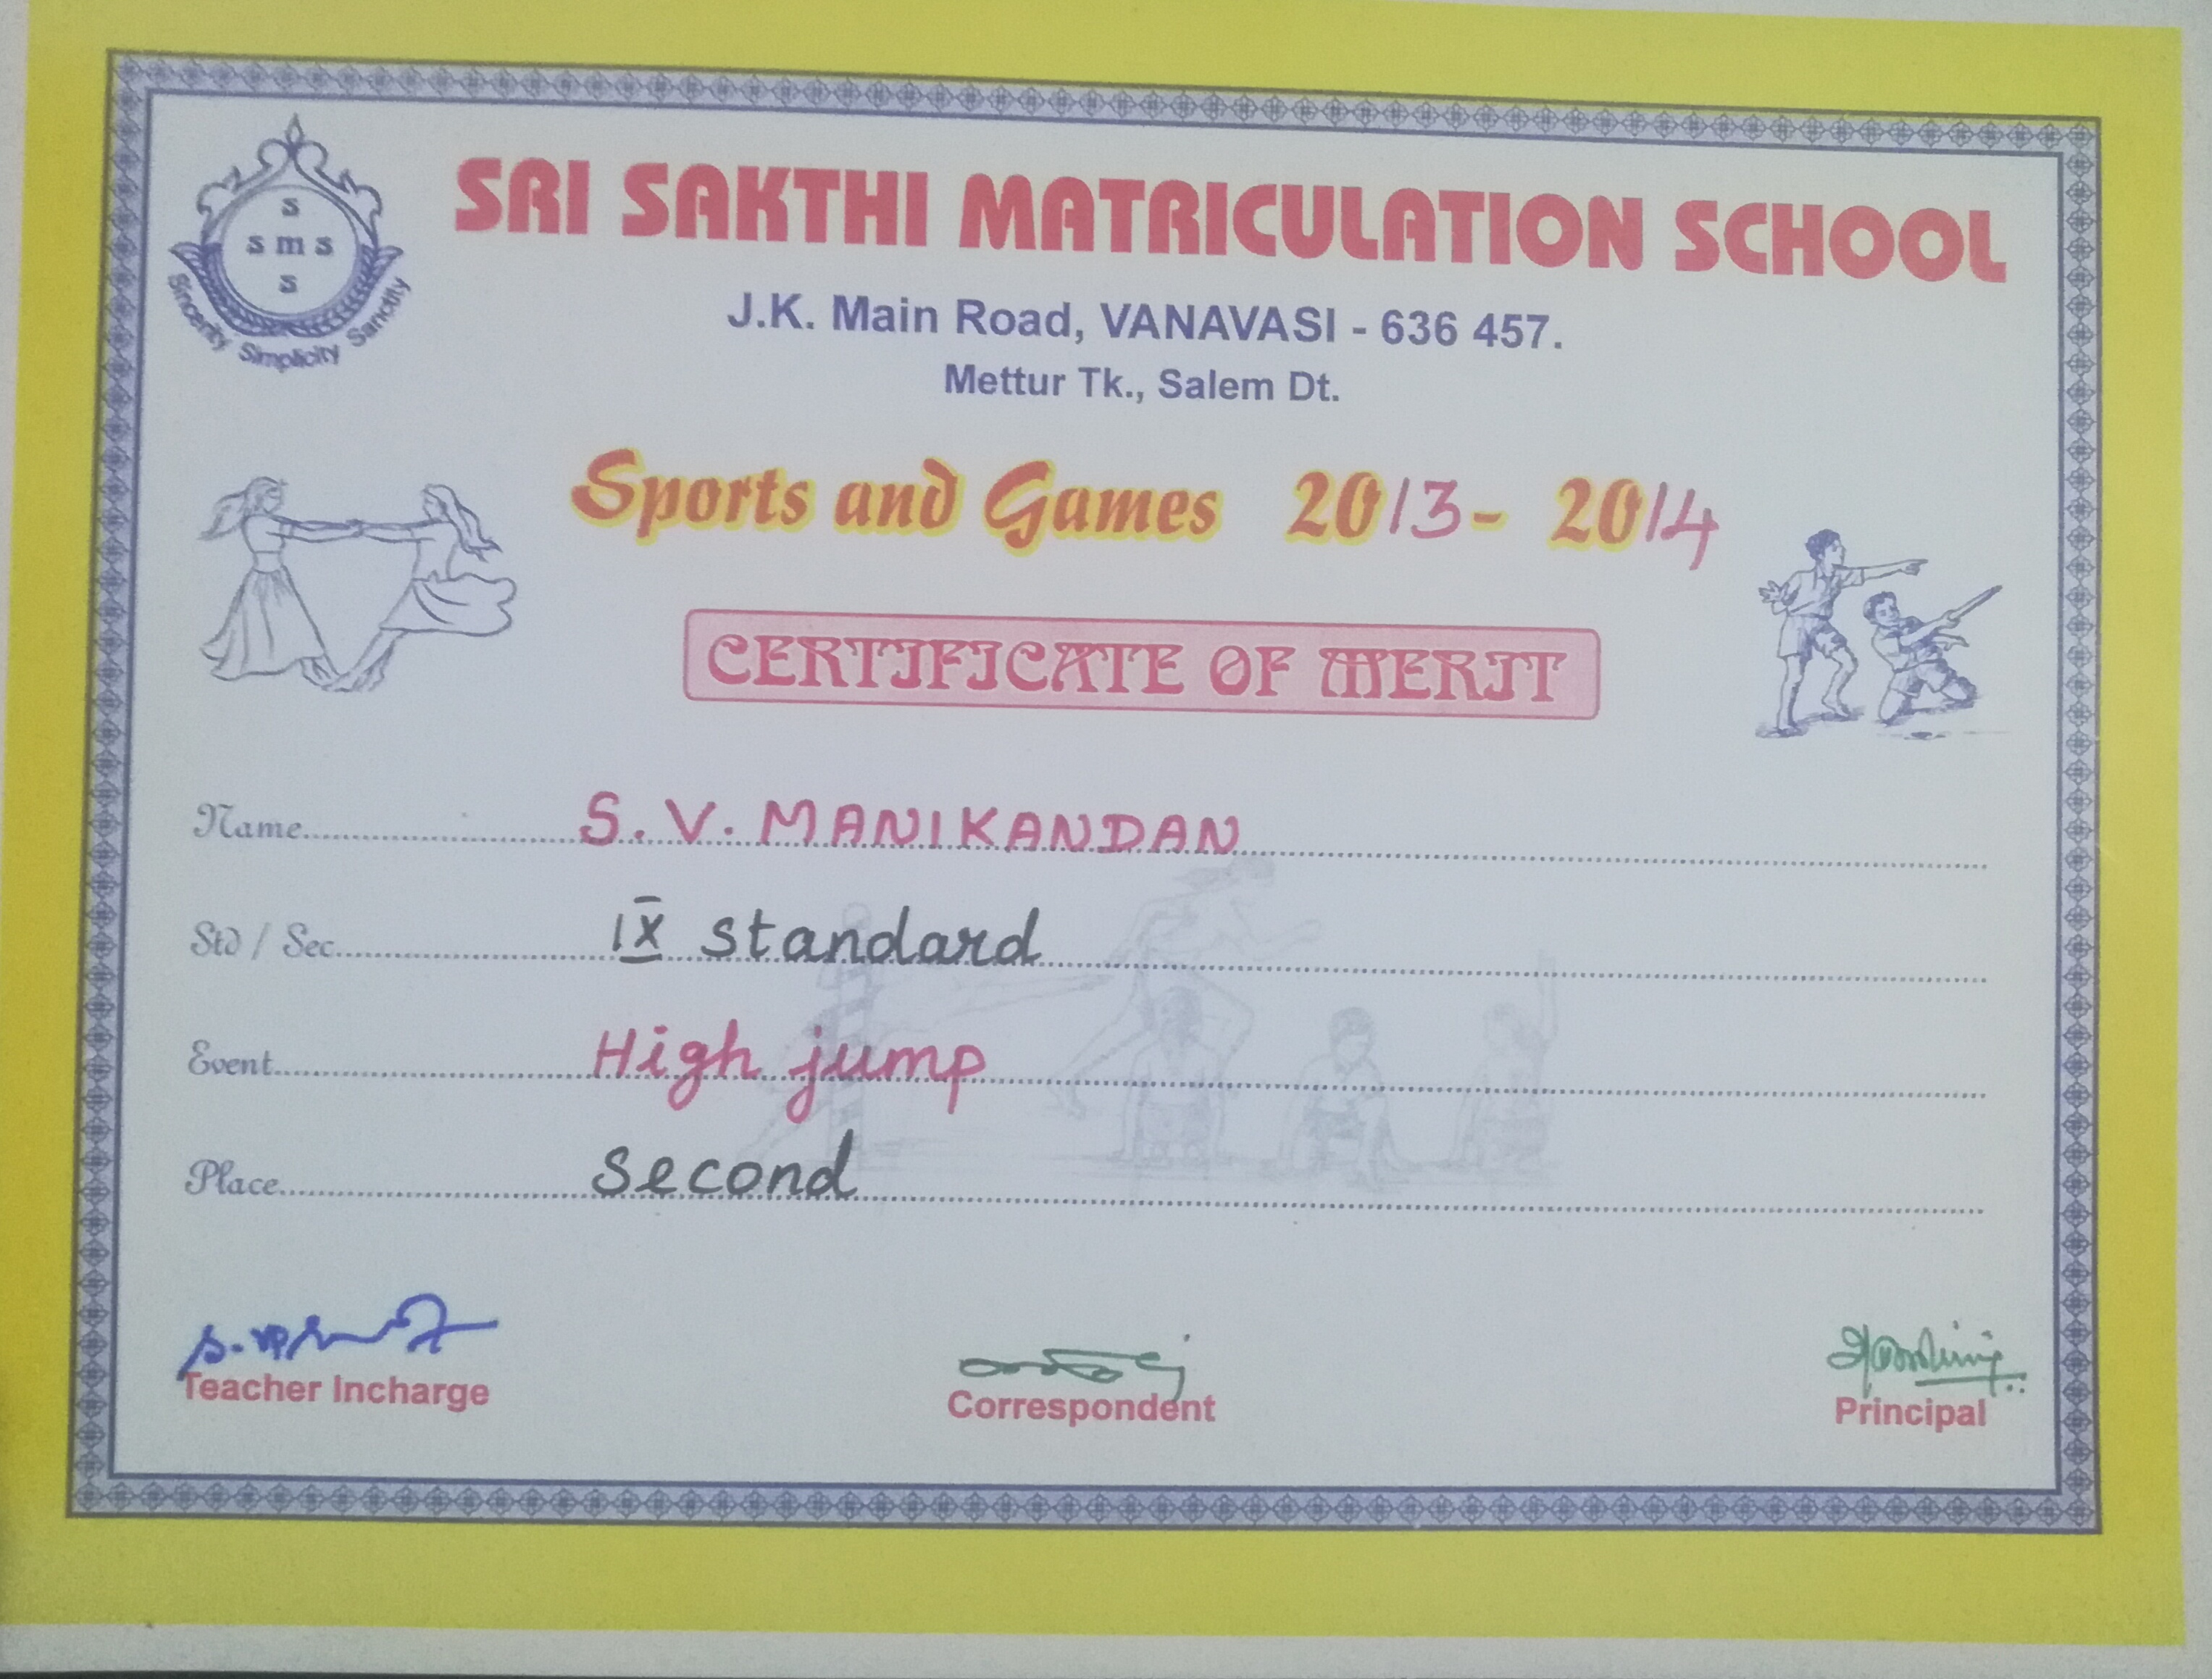 s
s m s
s
Sincerity Simplicity Sanctity
SRI SAKTHI MATRICULATION SCHOOL
J.K. Main Road, VANAVASI - 636 457.
Mettur Tk., Salem Dt.
Sports and Games 2013 - 2014
CERTIFICATE OF MERIT
Name S. V. MANIKANDAN
Std / Sec. IX standard
Event High jump
Place Second
Teacher Incharge
Correspondent
Principal